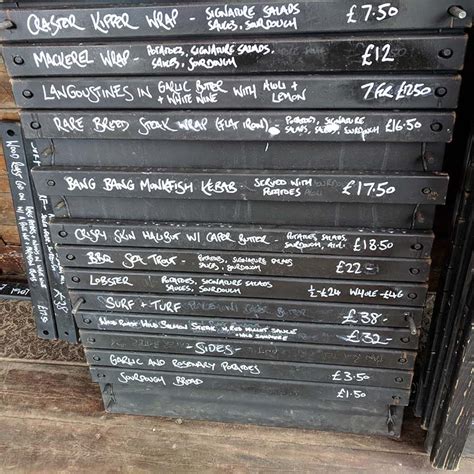 CRASTER KIPPER WRAP - SIGNATURE SALADS £7.50
SALSES, SOURDOUGH
MACKEREL WRAP - POTATOES, SIGNATURE SALADS £12
SALSES, SOURDOUGH
LANGOUSTINES IN GARLIC BUTTER WITH AIOLI + 7 FOR £12.50
+ WHITE WINE LEMON
RARE BREED STEAK WRAP (FLAT IRON) - POTATOES, SIGNATURE £16.50
SALADS, SALSES, SOURDOUGH
BANG BANG MONKFISH KEBAB SERVED WITH £17.50
POTATOES
CRISPY SKIN HALIBUT W/ CAPER BUTTER - POTATOES, SALADS £18.50
SOURDOUGH
BBQ SEA TROUT - POTATOES, SIGNATURE SALADS £22
SALSES, SOURDOUGH
LOBSTER POTATOES, SIGNATURE SALADS ½-£24 WHOLE-£46
SALSES, SOURDOUGH
SURF + TURF £38-
WOOD ROAST WILD SALMON STEAK W. RED MULLET SAUCE £32-
-SIDES-
GARLIC AND ROSEMARY POTATOES £3.50
SOURDOUGH BREAD £1.50